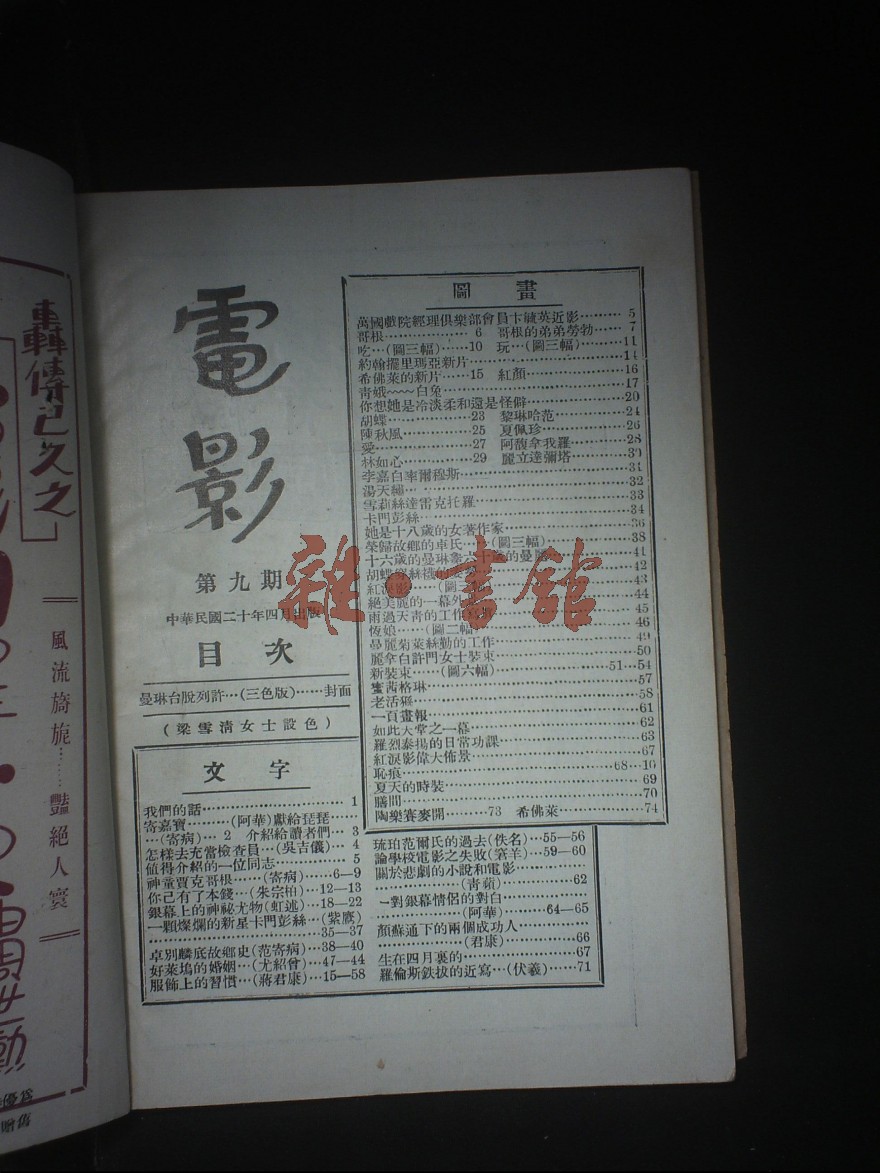 電影
第九期
中華民國二十年四月出版
目次
曼琳台脫列許…(三色版)……封面
(梁雪清女士設色)
圖畫
萬國戲院經理俱樂部會員卞毓英近影………5
哥根………6 哥根的弟弟勞勃……7
吃…(圖三幅)……10 玩…(圖三幅)……11
約翰擺里瑪亞新片………14
希佛萊的新片……15 紅顏………16
青娥~~~~白兔………17
你想她是冷淡柔和還是怪僻………20
胡蝶………23 黎琳哈范………24
陳秋風………25 夏佩珍………26
愛………27 阿馥拿我羅………28
林如心………29 麗立達彌塔………30
李嘉白率爾程斯………31
湯天繡………32
雪莉絲達雷克托羅………33
卡門彭絲………34
她是十八歲的女著作家………36
榮歸故鄉的卓氏……(圖三幅)………38
十六歲的曼琳 六十歲的曼 ………41
胡蝶 絲襪的 ………42
紅淚影……(圖 ………43
絕美麗的一幕外 ………44
雨過天青的工作 ………45
恆娘……(圖二幅)………46
曼麗菊萊絲勤的工作………49
麗拿白許門女士裝束………50
新裝束……(圖六幅)………51…54
蜜茜格琳………57
老活猻………58
一頁畫報………61
如此天堂之一幕………62
羅烈泰揚的日常功課………63
紅淚影偉大佈景………67
恥痕………68—10
夏天的時裝………69
膳間………70
陶樂賽麥開………73 希佛萊………74
文字
我們的話………1
寄嘉寶………(阿華)獻給琵琵……
…(寄病)…2 介紹給讀者們…3
怎樣去充當檢查員…(吳吉儀)…4
值得介紹的一位同志………5
神童賈克哥根…(寄病)……6—9
你己有了本錢…(朱宗柏)…12—13
銀幕上的神祕尤物(虹述)…18—22
一顆燦爛的新星卡門彭絲…(紫鷹)
………35—37
卓別麟底故鄉史(范寄病)…38—40
好萊塢的婚姻…(尤紹曾)…47—44
服飾上的習慣…(蔣君康)…15—58
琉珀范爾氏的過去(佚名)…55—56
論學校電影之失敗(窘羊)…59—60
關於悲劇的小說和電影………
………(青蘋)………62
一對銀幕情侶的對白………
………(阿華)……64—65
顏蘇通下的兩個成功人………
………(君康)………66
生在四月裏的………67
羅倫斯鉄拔的近寫…(伏羲)……71
轟傳已久之
風流旖旎……豔絕人寰
雜·書館